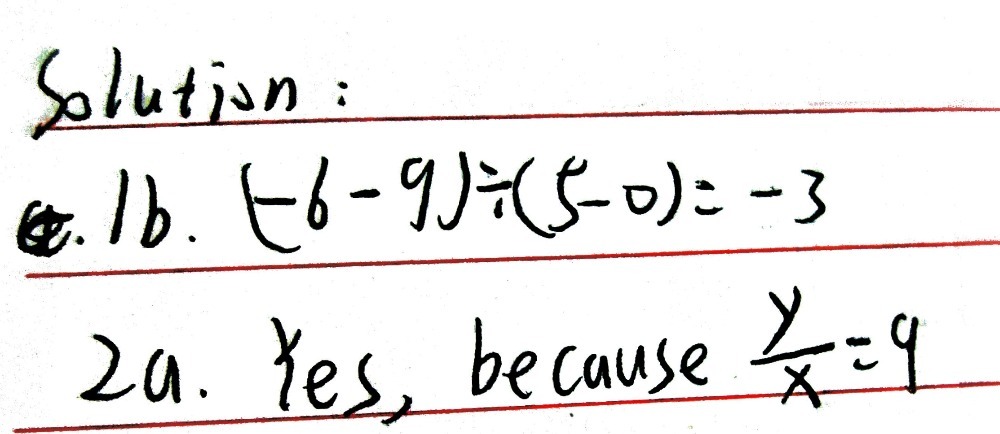 Solution:
1b. (-6-9)÷(5-0)=-3
2a. Yes, because y/x=9